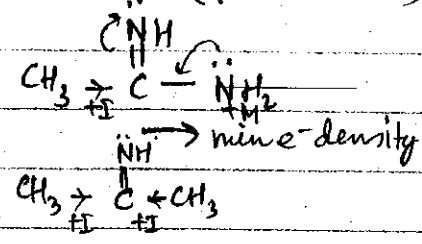 N̈H
||
CH₃ → C — N̈H₂
+I +M
N̈H → min e⁻ density
||
CH₃ → C ← CH₃
+I +I